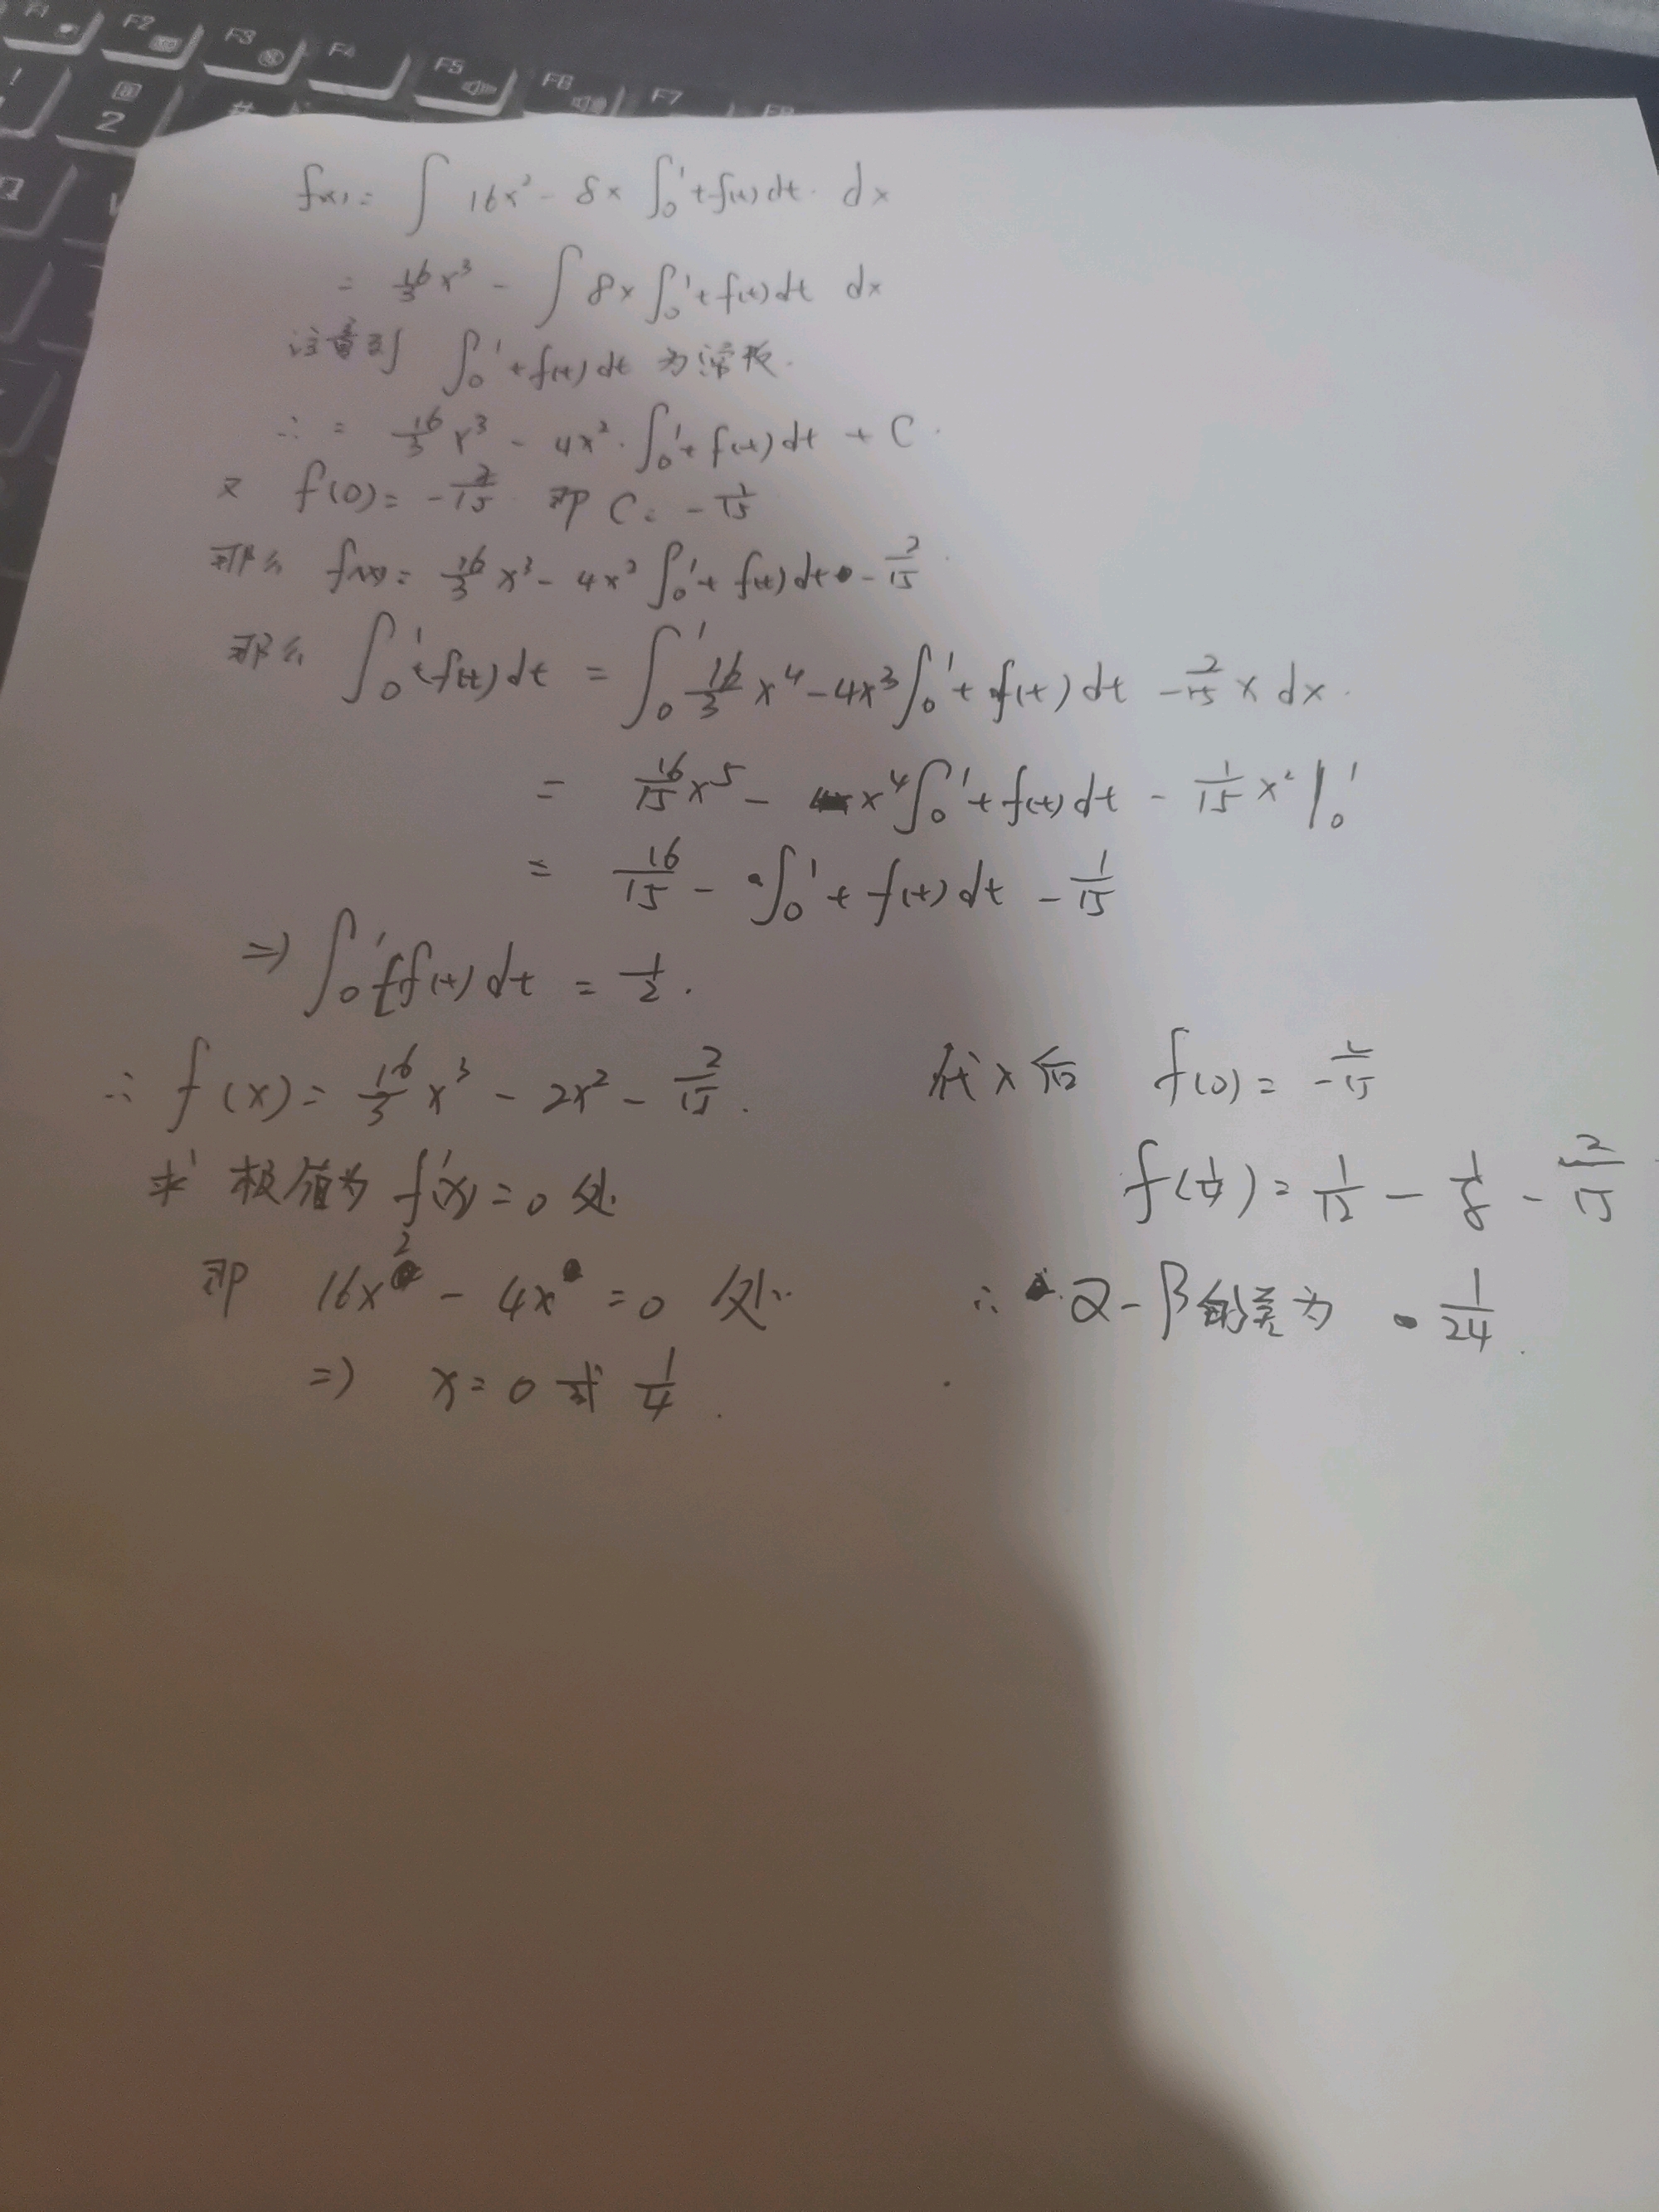 F1 F2 F3 F4 F5 F6 F7 F8
! @ 2 #
f(x) = ∫ 16x² - 8x ∫₀¹ t f(t) dt · dx
= 16/3 x³ - ∫ 8x ∫₀¹ t f(t) dt dx
注意到 ∫₀¹ t f(t) dt 为常数.
∴ = 16/3 x³ - 4x² · ∫₀¹ t f(t) dt + C.
又 f(0) = -2/15 即 C = -2/15
那么 f(x) = 16/3 x³ - 4x² ∫₀¹ t f(t) dt - 2/15.
那么 ∫₀¹ t f(t) dt = ∫₀¹ 16/3 x⁴ - 4x³ ∫₀¹ t f(t) dt - 2/15 x dx.
= 16/15 x⁵ - x⁴ ∫₀¹ t f(t) dt - 1/15 x² |₀¹
= 16/15 - ∫₀¹ t f(t) dt - 1/15
⇒ ∫₀¹ t f(t) dt = 1/2.
∴ f(x) = 16/3 x³ - 2x² - 2/15.
求 极值为 f'(x) = 0 处
即 16x² - 4x = 0 处.
⇒ x = 0 或 1/4.
代 x 后 f(0) = -2/15
f(1/4) = 1/12 - 1/8 - 2/15
∴ α - β 的差为 1/24.